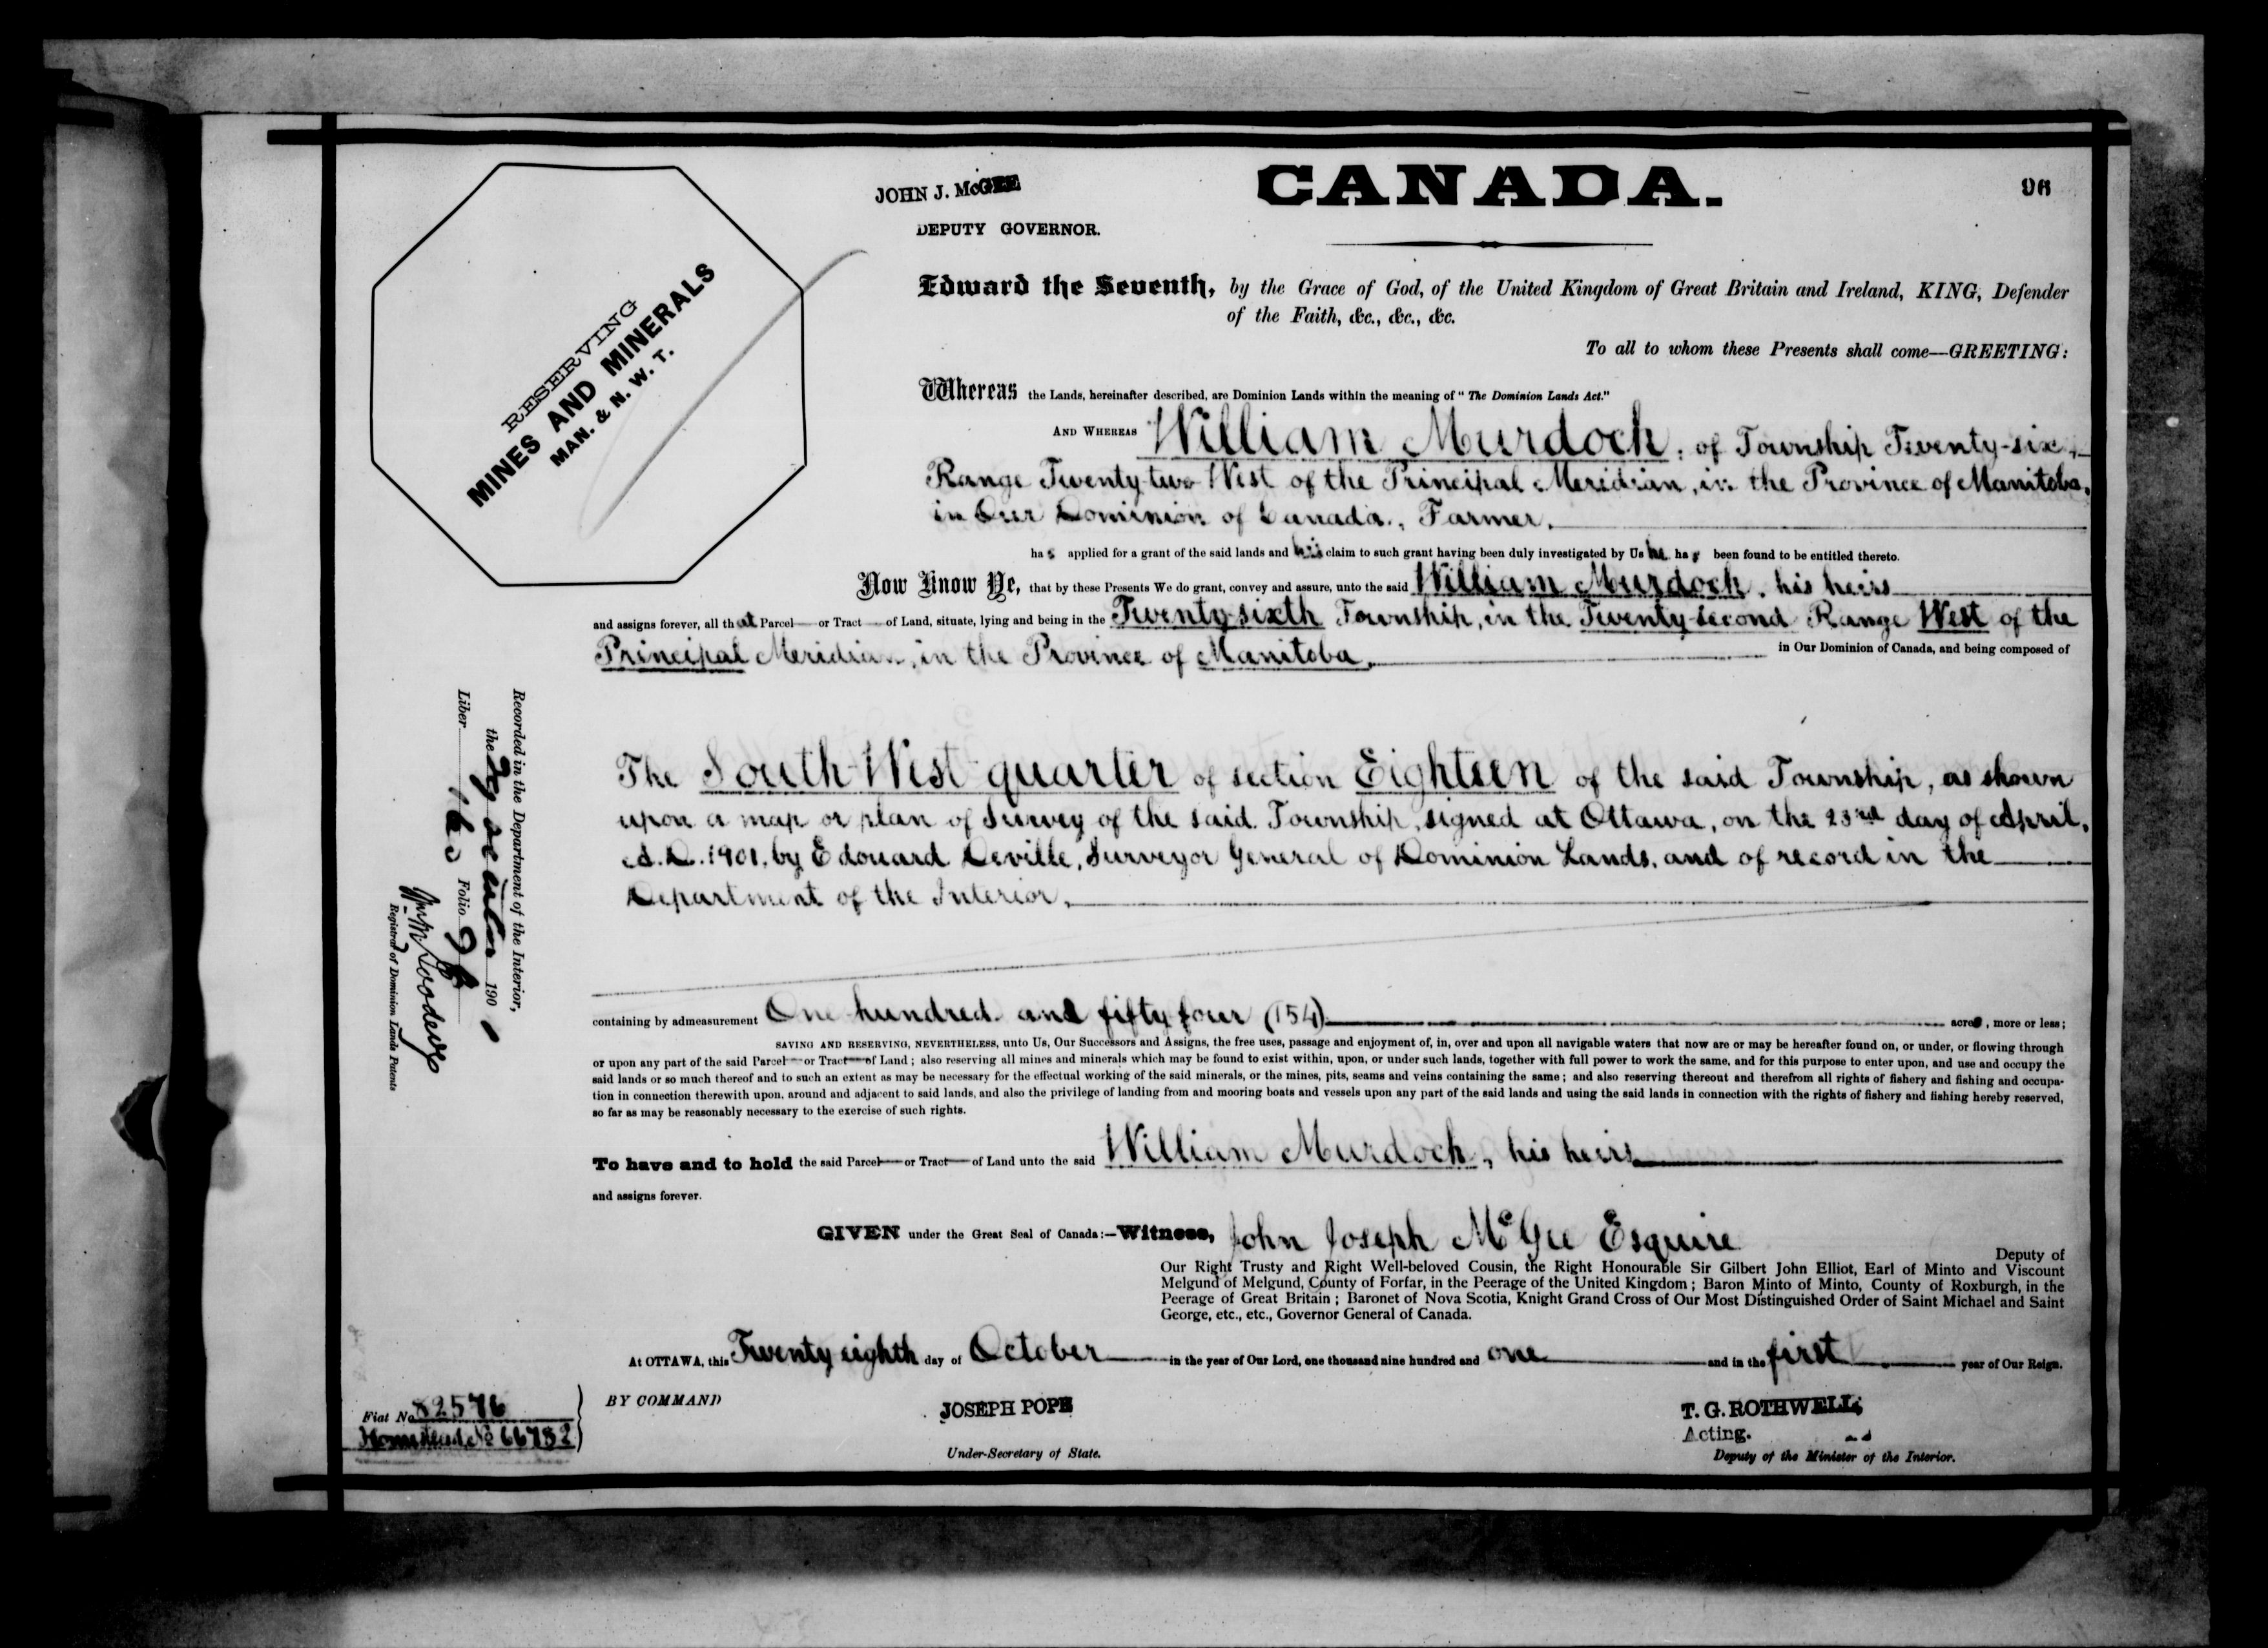 CANADA.
96
JOHN J. McGEE
DEPUTY GOVERNOR.
RESERVING
MINES AND MINERALS
MAN. & N. W. T.
Edward the Seventh, by the Grace of God, of the United Kingdom of Great Britain and Ireland, KING, Defender
of the Faith, &c., &c., &c.
To all to whom these Presents shall come—GREETING:
Whereas the Lands, hereinafter described, are Dominion Lands within the meaning of "The Dominion Lands Act."
AND WHEREAS William Murdoch, of Township Twenty-six,
Range Twenty-two West of the Principal Meridian, in the Province of Manitoba,
in Our Dominion of Canada, Farmer,
has applied for a grant of the said lands and his claim to such grant having been duly investigated by Us he has been found to be entitled thereto.
Now Know Ye, that by these Presents We do grant, convey and assure, unto the said William Murdoch, his heirs
and assigns forever, all that Parcel or Tract of Land, situate, lying and being in the Twenty-sixth Township, in the Twenty-second Range West of the
Principal Meridian, in the Province of Manitoba, in Our Dominion of Canada, and being composed of
The South-West quarter of section Eighteen of the said Township, as shown
upon a map or plan of Survey of the said Township, signed at Ottawa, on the 23rd day of April,
A.D. 1901, by Edouard Deville, Surveyor General of Dominion Lands, and of record in the
Department of the Interior,
containing by admeasurement One hundred and fifty four (154) acres, more or less;
SAVING AND RESERVING, NEVERTHELESS, unto Us, Our Successors and Assigns, the free uses, passage and enjoyment of, in, over and upon all navigable waters that now are or may be hereafter found on, or under, or flowing through
or upon any part of the said Parcel or Tract of Land; also reserving all mines and minerals which may be found to exist within, upon, or under such lands, together with full power to work the same, and for this purpose to enter upon, and use and occupy the
said lands or so much thereof and to such an extent as may be necessary for the effectual working of the said minerals, or the mines, pits, seams and veins containing the same; and also reserving thereout and therefrom all rights of fishery and fishing and occupa-
tion in connection therewith upon, around and adjacent to said lands, and also the privilege of landing from and mooring boats and vessels upon any part of the said lands and using the said lands in connection with the rights of fishery and fishing hereby reserved,
so far as may be reasonably necessary to the exercise of such rights.
To have and to hold the said Parcel or Tract of Land unto the said William Murdoch, his heirs
and assigns forever.
GIVEN under the Great Seal of Canada:—Witness, John Joseph McGee Esquire
Deputy of
Our Right Trusty and Right Well-beloved Cousin, the Right Honourable Sir Gilbert John Elliot, Earl of Minto and Viscount
Melgund of Melgund, County of Forfar, in the Peerage of the United Kingdom; Baron Minto of Minto, County of Roxburgh, in the
Peerage of Great Britain; Baronet of Nova Scotia, Knight Grand Cross of Our Most Distinguished Order of Saint Michael and Saint
George, etc., etc., Governor General of Canada.
At OTTAWA, this Twenty eighth day of October in the year of Our Lord, one thousand nine hundred and one and in the first year of Our Reign.
BY COMMAND
JOSEPH POPE
Under-Secretary of State.
T. G. ROTHWELL,
Acting.
Deputy of the Minister of the Interior.
Fiat No 82576
Homestead No 66782
Recorded in the Department of the Interior,
the 190 1
Liber 160 Folio 96
Registrar of Dominion Lands Patents